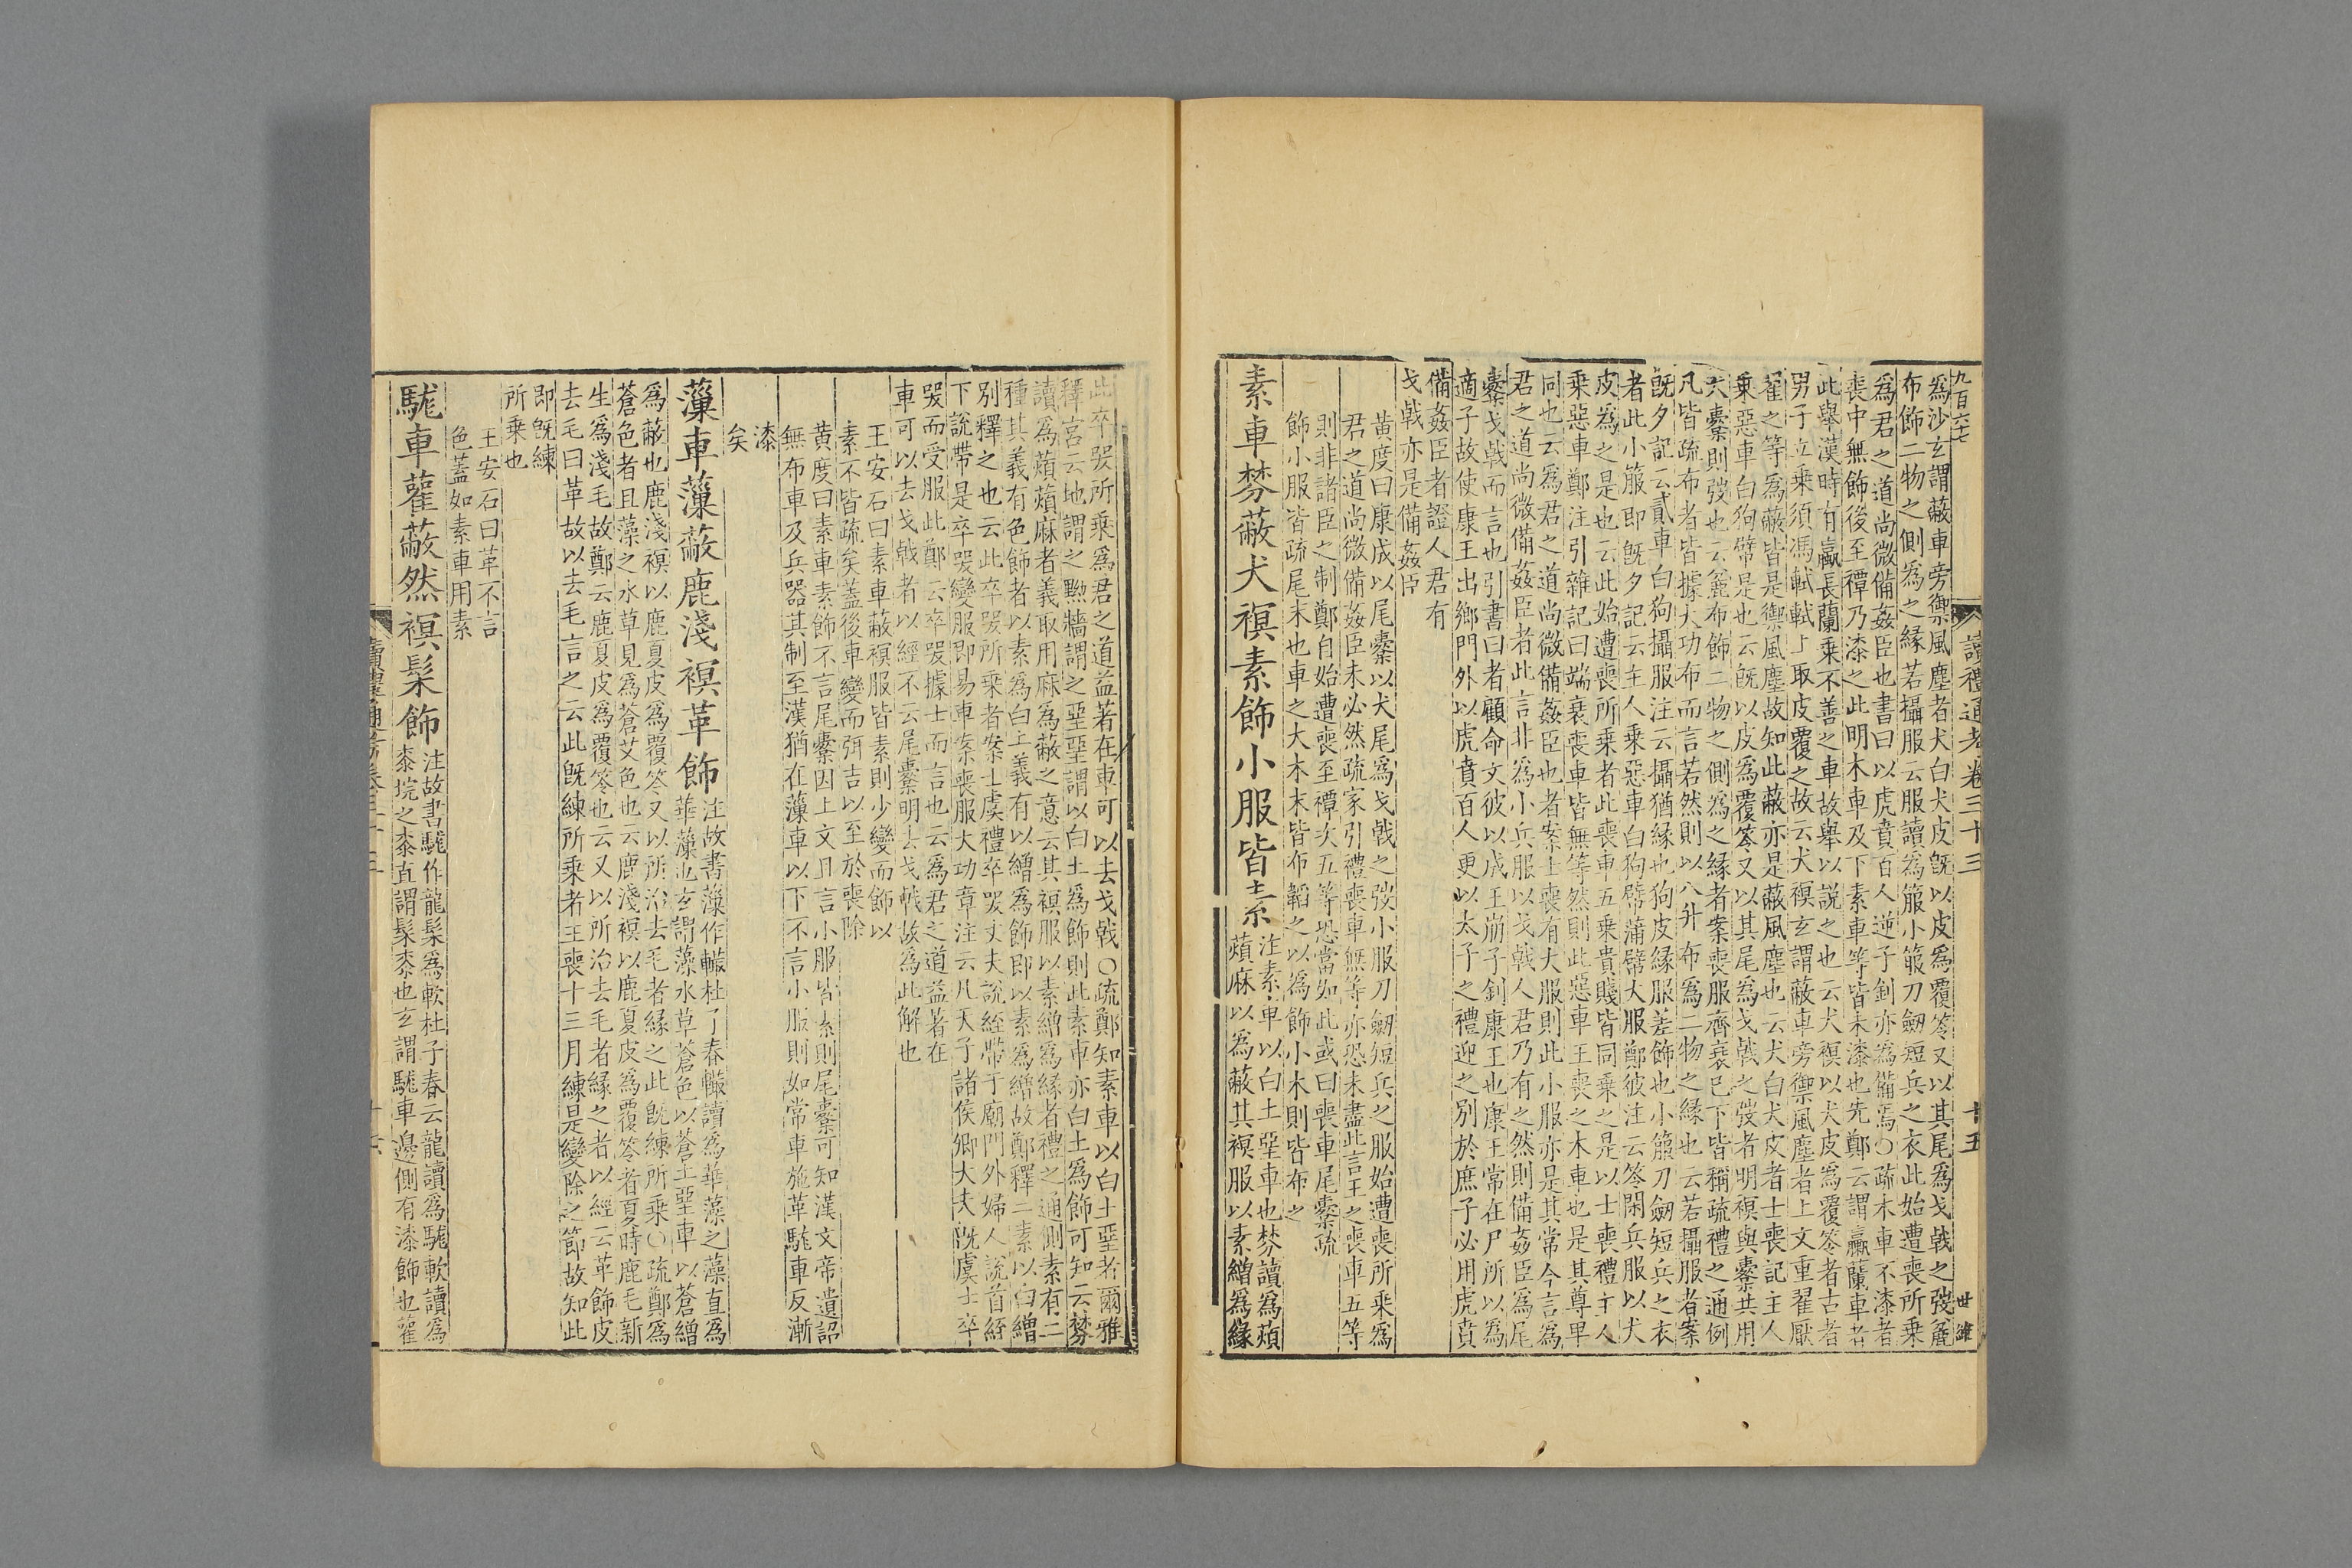 九百六七
讀禮通考卷三十三
十五
爲沙玄謂蔽車旁禦風塵者犬白犬皮旣以皮爲覆笭又以其尾爲戈戟之弢麤
布飾二物之側爲之緣若攝服云服讀爲箙小箙刀劒短兵之衣此始遭喪所乗
爲君之道尚微備姦臣也書曰以虎賁百人逆子釗亦爲備焉○疏木車不漆者
喪中無飾後至禫乃漆之此明木車及下素車等皆未漆也先鄭云謂蠃蘭車者
此舉漢時有蠃長蘭乗不善之車故舉以說之也云犬𧜀以犬皮爲覆笭者古者
男子立乗須馮軾軾上取皮覆之故云犬𧜀玄謂蔽車旁禦風塵者上文重翟厭
翟之等爲蔽皆是禦風塵故知此蔽亦是蔽風塵也云犬白犬皮者士喪記主人
乗惡車白狗幦是也云旣以皮爲覆笭又以其尾爲戈戟之弢者明𧜀與櫜共用
犬櫜則弢也云麤布飾二物之側爲之緣者案喪服齊衰已下皆稱疏禮之通例
凡皆疏布者皆據大功布而言若然則以八升布爲二物之緣也云若攝服者案
旣夕記云貳車白狗攝服注云攝猶緣也狗皮緣服差飾也小箙刀劒短兵之衣
者此小箙即旣夕記云主人乗惡車白狗幦蒲蔽犬服鄭彼注云笭閑兵服以犬
皮爲之是也云此始遭喪所乗者此喪車五乗貴賤皆同乗之是以士喪禮主人
乗惡車鄭注引雜記曰端衰喪車皆無等然則此惡車王喪之木車也是其尊卑
同也云爲君之道尚微備姦臣也者案士喪有犬服則此小服亦是其常今言爲
君之道尚微備姦臣者此言非爲小兵服以戈戟人君乃有之然則備姦臣爲尾
櫜戈戟而言也引書曰者顧命文彼以成王崩子釗康王也康王常在尸所以爲
適子故使康王出鄉門外以虎賁百人更以太子之禮迎之别於庶子必用虎賁
備姦臣者證人君有
戈戟亦是備姦臣
黃度曰康成以尾櫜以犬尾爲戈戟之弢小服刀劒短兵之服始遭喪所乗爲
君之道尚微備姦臣未必然疏家引禮喪車無等亦恐未盡此言王之喪車五等
則非諸臣之制鄭自始遭喪至禫次五等恐當如此或曰喪車尾櫜疏
飾小服皆疏尾末也車之大木末皆布韜之以爲飾小木則皆布之
素車棼蔽犬𧜀素飾小服皆素注素車以白土堊車也棼讀爲薠
薠麻以爲蔽其𧜀服以素繒爲緣
此卒哭所乗爲君之道益著在車可以去戈戟○疏鄭知素車以白土堊者爾雅
釋宮云地謂之黝牆謂之堊堊謂以白土爲飾則此素車亦白土爲飾可知云棼
讀爲薠薠麻者義取用麻爲蔽之意云其𧜀服以素繒爲緣者禮之通側素有二
種其義有色飾者以素爲白土義有以繒爲飾即以素爲繒故鄭釋二素以白繒
别釋之也云此卒哭所乗者案士虞禮卒哭丈夫說絰帶于廟門外婦人說首絰
下說帶是卒哭變服即易車案喪服大功章注云凡天子諸侯卿大夫旣虞士卒
哭而受服此鄭云卒哭據士而言也云爲君之道益著在
車可以去戈戟者以經不云尾櫜明去戈戟故爲此解也
王安石曰素車蔽𧜀服皆素則少變而飾以
素不皆疏矣蓋後車變而弭吉以至於喪除
黃度曰素車素飾不言尾櫜因上文且言小服皆素則尾櫜可知漢文帝遺詔
無布車及兵器其制至漢猶在薻車以下不言小服則如常車施革駹車反漸
漆
矣
薻車薻蔽鹿淺𧜀革飾注故書薻作轈杜子春轈讀爲華藻之藻直爲
華藻也玄謂藻水草蒼色以蒼土堊車以蒼繒
爲蔽也鹿淺𧜀以鹿夏皮爲覆笭又以所治去毛者緣之此旣練所乗○疏鄭爲
蒼色者且藻之水草見爲蒼艾色也云鹿淺𧜀以鹿夏皮爲覆笭者夏時鹿毛新
生爲淺毛故鄭云鹿夏皮爲覆笭也云又以所治去毛者緣之者以經云革飾皮
去毛曰革故以去毛言之云此旣練所乗者王喪十三月練是變除之節故知此
即旣練
所乗也
王安石曰革不言
色蓋如素車用素
駹車雚蔽然𧜀髹飾注故書駹作龍髹爲軟杜子春云龍讀爲駹軟讀爲
桼垸之桼直謂髹桼也玄謂駹車邊側有漆飾也雚
讀禮通考卷三十三
十六